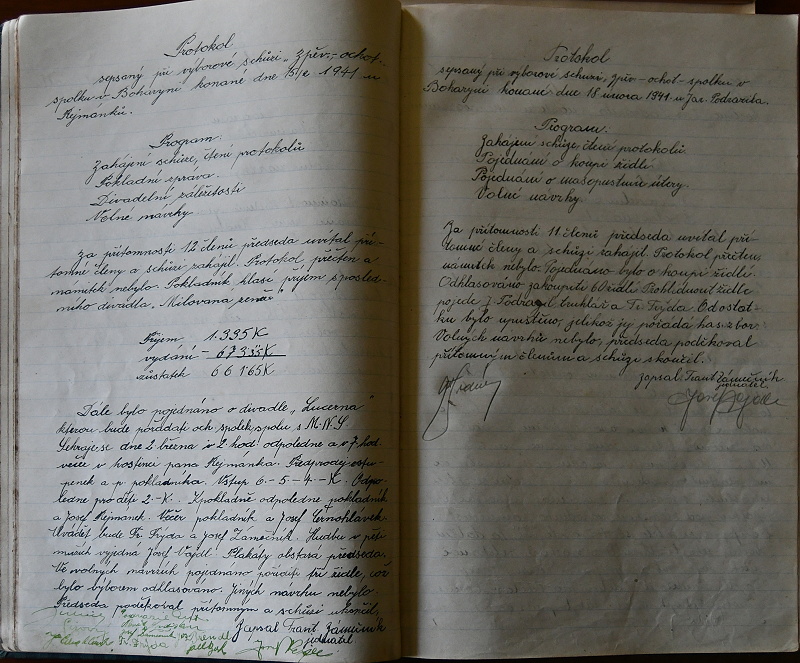 Protokol
sepsaný při výborové schůzi „Zpěv.-ochot-
spolku v Boharyni, konané dne 15/2 1941 u
Rejmanků.
Program:
Zahájení schůze, čtení protokolů
Pokladní zpráva.
Divadelní záležitosti
Volné návrhy
Za přítomnosti 12 členů předseda uvítal pří-
tomné členy a schůzi zahájil. Protokol přečten a
námitek nebylo. Pokladník hlásí příjem s posled-
ního divadla. „Milovaná
Příjem 1.335K
vydání - 673.35K
zůstatek 661.65K
Dále bylo pojednáno o divadle „Lucerna"
kterou bude pořádati och. spolek spolu s M.N.S.
Sehraje se dne 2 března v 2 hod odpoledne a v 7 hod
večer v hostinci pana Rejmánka. Předprodej vstu-
penek a p. pokladníka. Vstup 6.-5-4.-K. Odpo-
ledne pro děti 2.-K. U pokladně odpoledne pokladník
a Josef Rejmánek. Večer pokladník a Josef Černohlávek.
Uvádět bude Fr. Fryda a Josef Zámečník. Hudbu v pěti
mužích vyjedná Josef Vajdl. Plakáty obstará předseda.
Ve volných návrzích pojednáno poříditi tři židle, což
bylo výborem odhlasováno. Jiných návrhu nebylo.
Předseda poděkoval přítomným a schůzi ukončil.
Zapsal Frant Zámečník
jednatel
Protokol
sepsaný při výborové schůzi, zpěv-ochot-spolku v
Boharyni konané dne 18 února 1941 u Jar. Podrazila.
Program:
Zahájení schůze, čtení protokolů.
Pojednání o koupi židlí.
Pojednání o masopustním úterý.
Volné návrhy.
Za přítomnosti 11 členů předseda uvítal pří-
tomné členy a schůzi zahájil. Protokol přečten,
námitek nebylo. Pojednáno bylo o koupi židlí.
Odhlasováno zakoupiti 60 židlí. Prohlédnout židle
pojede J. Podrazil truhlář a Fr. Fryda. Od ostat-
ku bylo upuštěno, jelikož jej pořádá has. sbor.
Volných návrhů nebylo, předseda poděkoval
přítomným členům a schůzi skončil.
zapsal Frant Zámečník
jednatel